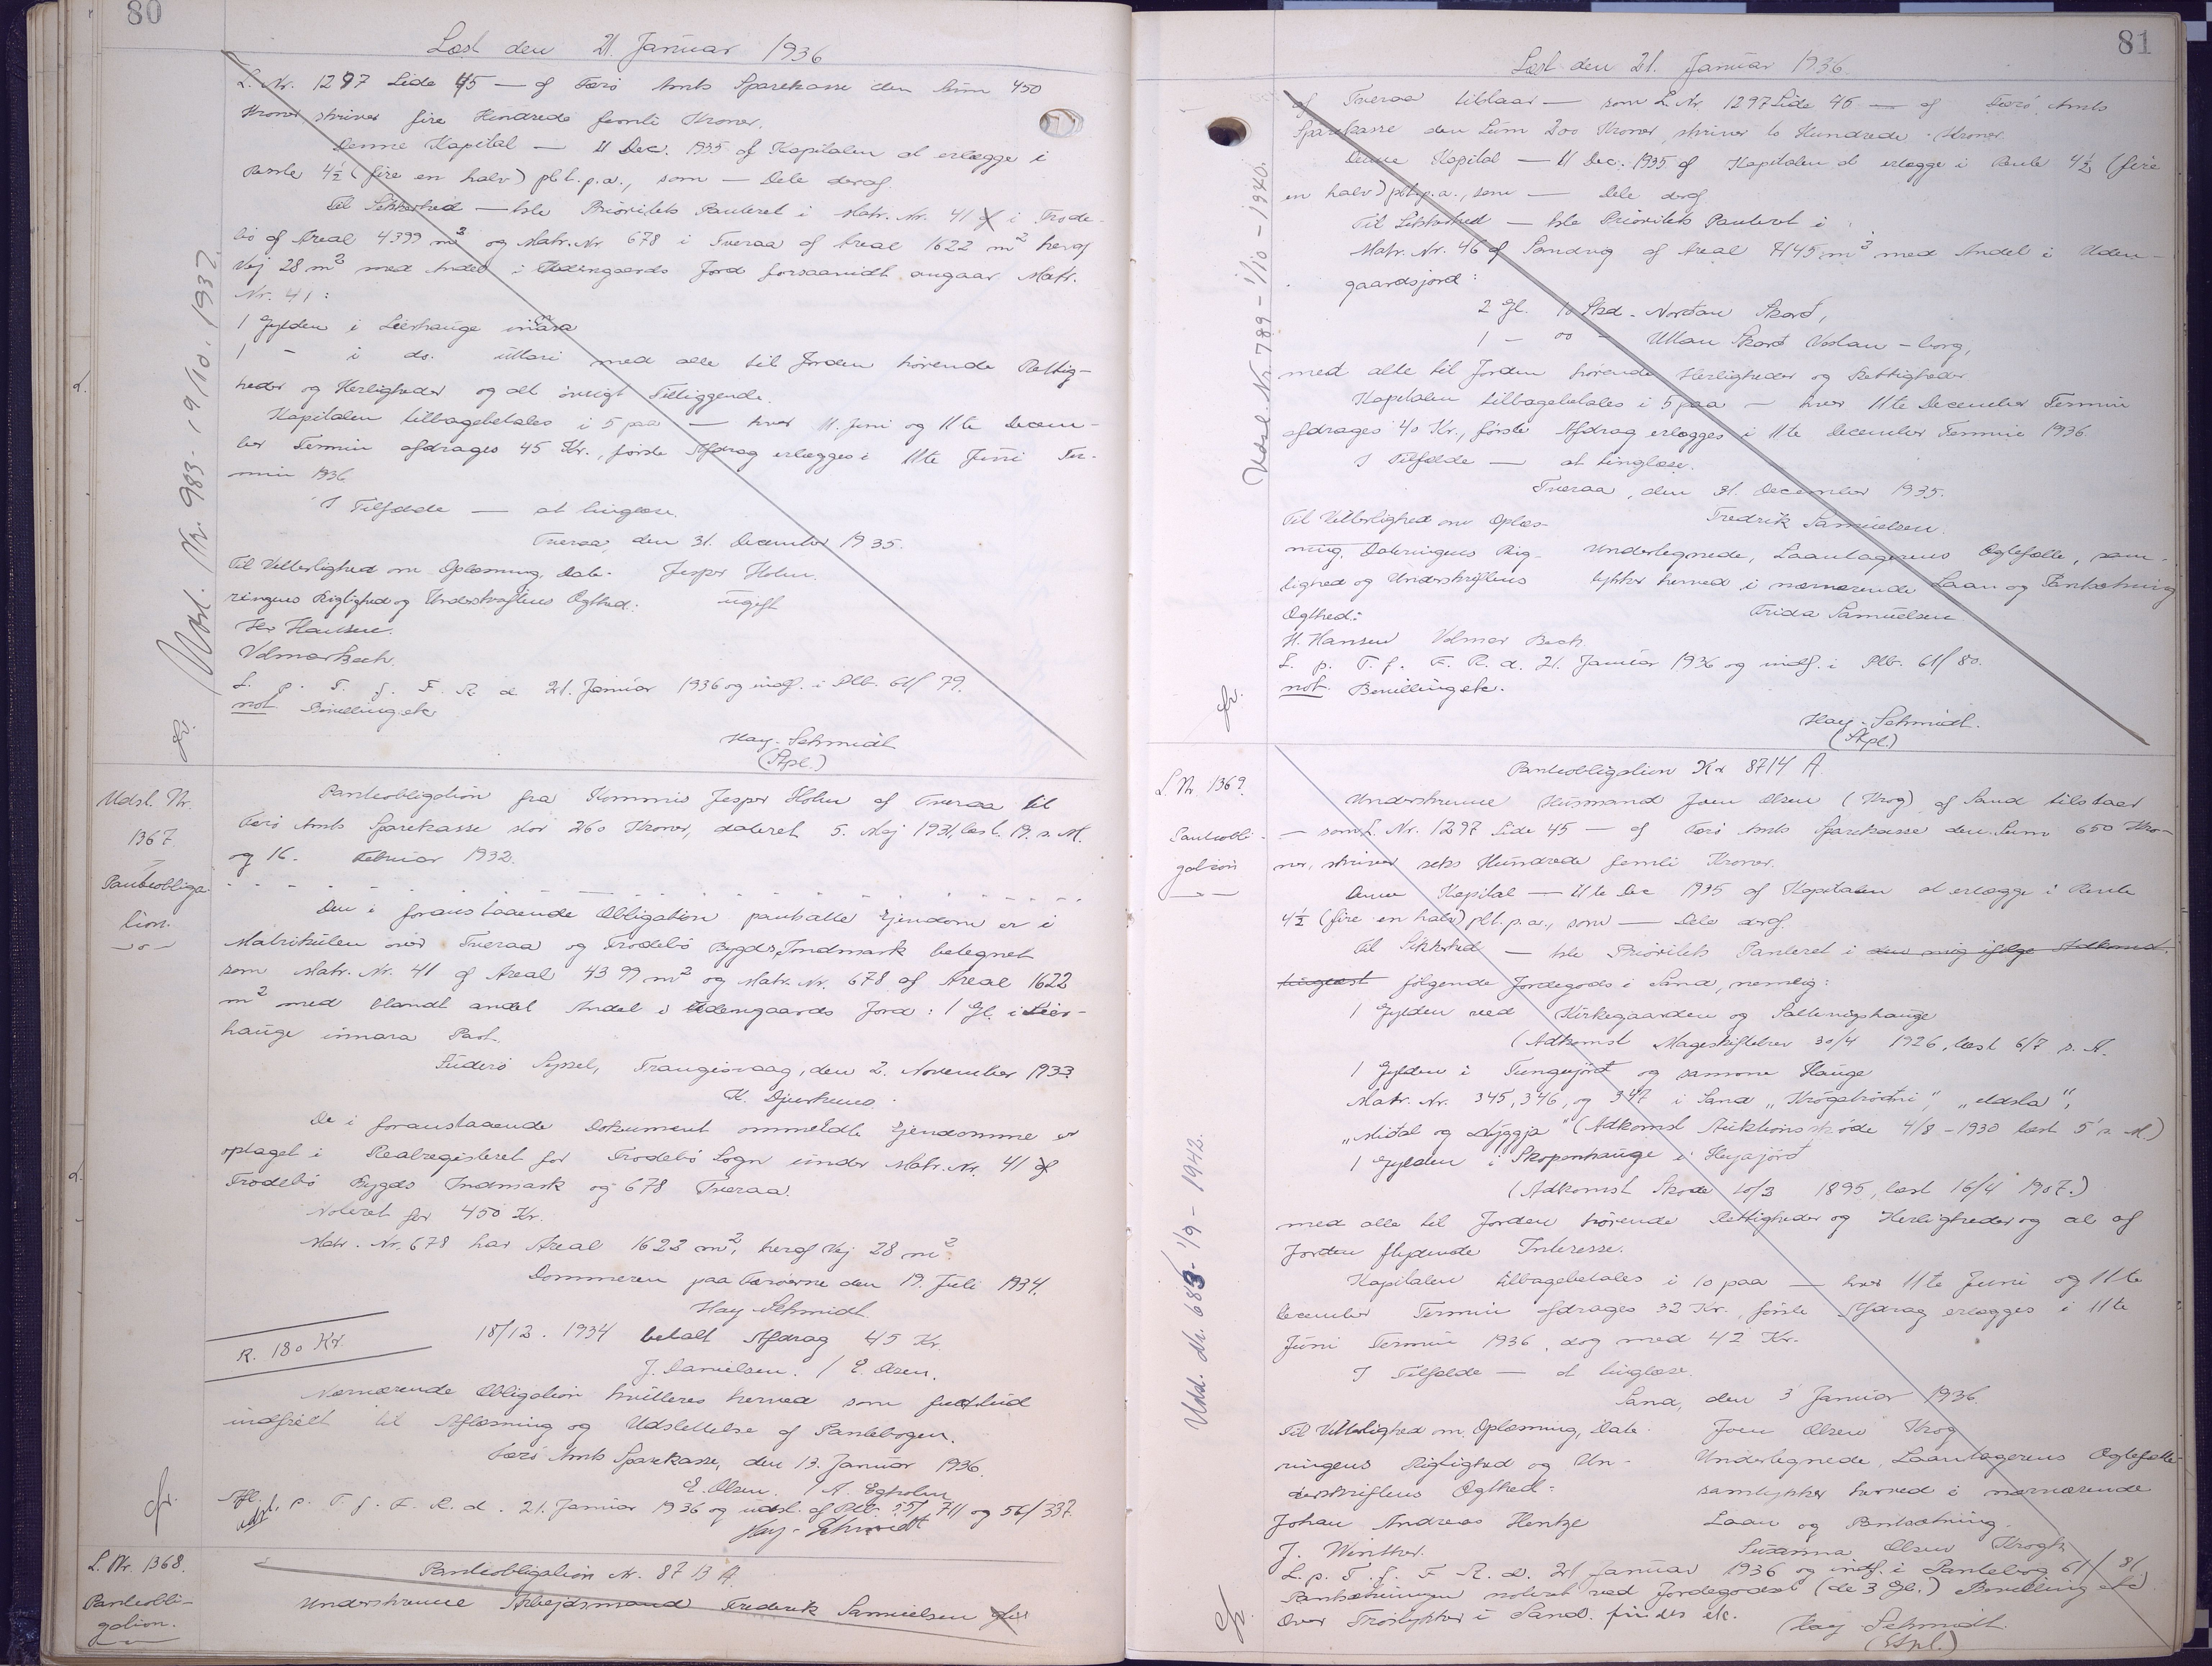 80
Læst den 21. Januar 1936
L. Nr. 1297 Side 45 — af Færö Amts Sparekasse den Sum 450
Kroner, skriver fire Hundrede femti Kroner.
Denne Kapital — 11 Dec. 1935 af Kapitalen at erlægge i
Rente 4½ (fire en halv) pCt. p.a., som — Dele deraf.
Til Sikkerhed — 1ste Prioritets Panteret i Matr. Nr. 41 af i Frode-
bö af Areal 4399 m² og Matr. Nr 678 i Tveraa af Areal 1622 m² heraf
Vej 28 m² med Andel i Udengaards Jord forsaavidt angaar Matr.
Nr. 41:
1 Gylden i Leirhauge innara
1 — i do. uttari med alle til Jorden hörende Rettig-
heder og Herligheder og alt övrigt Tilliggende.
Kapitalen tilbagebetales i 5 paa — hver 11. Juni og 11te Decem-
ber Termin afdrages 45 Kr., förste Afdrag erlægges i 11te Juni Ter-
min 1936
I Tilfælde — at tinglæse.
Tveraa, den 31. December 1935.
Til Vitterlighed om Oplæsning, Date- Jesper Holm.
ringens Rigtighed og Underskriftens Ægthed: ugift
Hr Hansen.
Volmar Bech.
L. p. T. f. F. R d 21. Januar 1936 og indf. i Plb. 61/79.
not Bevilling etc
Hay-Schmidt
(Stpl.)
fr.
Udsl. Nr. 983 - 19/10. 1937.
Udsl. Nr.
1367.
Panteobliga-
tion.
Panteobligation fra Kommis Jesper Holm af Tveraa til
Færö Amts Sparekasse stor 260 Kroner, dateret 5. Maj 1931 læst. 19. s. M.
og 16. Februar 1932.
Den i foranstaaende Obligation pantsatte Ejendom er i
Matrikulen over Tveraa og Frodebö Bygds Indmark betegnet
som Matr. Nr. 41 af Areal 4399 m² og Matr. Nr. 678 af Areal 1622
m² med blandt andet Andel i Udengaards Jord: 1 Gl. i Leir-
hauge innara Part.
Suderö Syssel, Trangisvaag, den 2. November 1933.
K. Djurhuus.
De i foranstaaende Dokument ommeldte Ejendomme er
optaget i Realregisteret for Frodebö Sogn under Matr. Nr. 41 af
Frodebö Bygds Indmark og 678 Tveraa.
Noteret for 450 Kr.
Matr. Nr. 678 har Areal 1622 m², heraf Vej 28 m²
Dommeren paa Færöerne den 19. Juli 1934.
Hay-Schmidt.
R. 180 Kr. 18/12. 1934 betalt Afdrag 45 Kr.
J. Danielsen. / E. Olsen.
Nærværende Obligation kvitteres herved som fuldtud
indfriet til Aflæsning og Udslettelse af Pantebogen.
Færö Amts Sparekasse, den 13. Januar 1936.
E. Olsen. / A. Egholm
Afl. p. T. f. F. R. d. 21. Januar 1936 og udsl. af Plb. 55/711 og 56/337.
udsl.
Hay-Schmidt
fr.
L. Nr. 1368.
Panteobli-
gation.
Panteobligation Nr. 8713 A
Underskrevne Arbejdsmand Frederik Samuelsen
81
Læst den 21. Januar 1936.
af Tveraa tilstaar — som L. Nr. 1297 Side 45 — af Færö Amts
Sparekasse den Sum 200 Kroner, skriver to Hundrede Kroner.
Denne Kapital — 11 Dec. 1935 af Kapitalen at erlægge i Rente 4½ (fire
en halv) pCt. p.a., som — Dele deraf
Til Sikkerhed — 1ste Prioritets Panteret i
Matr. Nr. 46 af Sandvig af Areal 7145 m² med Andel i Uden-
gaardsjord:
2 Gl. 10 Skd. Nordan Skard,
1 — 00 — Uttan Skard Vestan-borg,
med alle til Jorden hörende Herligheder og Rettigheder
Kapitalen tilbagebetales i 5 paa — hver 11te December Termin
afdrages 40 Kr., förste Afdrag erlægges i 11te December Termin 1936.
I Tilfælde — at tinglæse.
Tveraa, den 31. December 1935.
Til Vitterlighed om Oplæs- Fredrik Samuelsen.
ning, Dateringens Rig- Undertegnede, Laantagerens Ægtefælle, sam-
tighed og Underskriftens tykker herved i nærværende Laan og Pantsætning
Ægthed: Frida Samuelsen
H. Hansen Volmar Bech.
L. p. T. f. F. R. d. 21. Januar 1936 og indf. i Plb. 61/80.
not Bevilling etc.
Hay-Schmidt.
(Stpl.)
fr.
Udsl. Nr. 789 - 1/10 - 1940.
L. Nr 1369.
Panteobli-
gation
Panteobligation Nr 8714 A.
Underskrevne Husmand Joen Olsen (Krog) af Sand tilstaar
— som L. Nr. 1297 Side 45 — af Færö Amts Sparekasse den Sum 650 Kro-
ner, skriver seks Hundrede femti Kroner.
Denne Kapital — 11te Dec 1935 af Kapitalen at erlægge i Rente
4½ (fire en halv) pCt. p.a., som — Dele deraf.
Til Sikkerhed — 1ste Prioritets Panteret i den mig ifölge Adkomst
tinglæst fölgende Jordegods i Sand, nemlig:
1 Gylden ved Kirkegaarden og Salteringshauge
(Adkomst Mageskiftebrev 30/4 1926, læst 6/7 s. A.
1 Gylden i Tungujörd og sammme Hauge
Matr. Nr. 345, 346, og 347 i Sand „Krógatrödni", „eldsta",
„Midal og Nýggja" (Adkomst Auktionsskøde 4/8 - 1930 læst 5 s. M.)
1 Gylden i Skopenhauge i Heyajörd
(Adkomst Skøde 10/3 1895, læst 16/4 1907.)
med alle til Jorden hörende Rettigheder og Herligheder og al af
Jorden flydende Interesse.
Kapitalen tilbagebetales i 10 paa — hver 11te Juni og 11te
December Termin afdrages 32 Kr., förste Afdrag erlægges i 11te
Juni Termin 1936, dog med 42 Kr.
I Tilfælde — at tinglæse.
Sand, den 3 Januar 1936.
Til Vitterlighed om Oplæsning, Date- Joen Olsen Krog
ringens Rigtighed og Un- Undertegnede, Laantagerens Ægtefælle
derskriftens Ægthed: samtykker herved i nærværende
Johan Andreas Hentze Laan og Pantsætning.
J. Winther. Susanna Olsen Krogh
L. p. T. f. F. R. d. 21 Januar 1936 og indf. i Pantebog 61/81
Pantsætningen noteret ved Jordegodset (de 3 Gl.) Bevilling etc
Over Tröstykker i Sand findes etc.
Hay Schmidt.
(Stpl.)
fr.
Udsl. Nr. 683 - 1/9 - 1942.